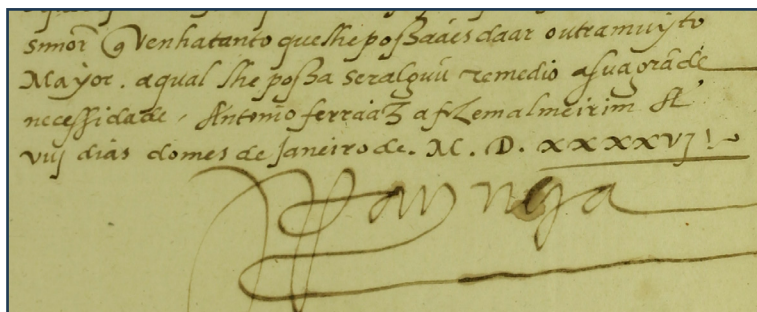 q Venha tanto que lhe possaaes daar outra muyto
Mayor. aqual lhe possa ser alguũ remedio a sua grãde
necessidade. Antonio ferraaz a fez em almeirim A
viij dias do mes de Janeiro de. M. D. xxxxvj
Raynha